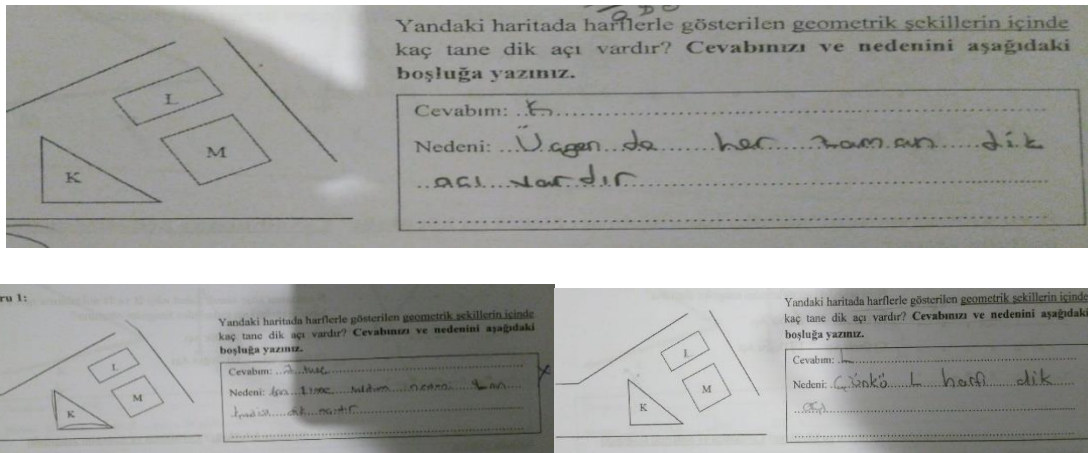 Yandaki haritada harflerle gösterilen geometrik şekillerin içinde
kaç tane dik açı vardır? Cevabınızı ve nedenini aşağıdaki
boşluğa yazınız.
L
M
K
Cevabım: K
Nedeni: Üçgen da her zaman dik
açı vardır
ru 1:
Yandaki haritada harflerle gösterilen geometrik şekillerin içinde
kaç tane dik açı vardır? Cevabınızı ve nedenini aşağıdaki
boşluğa yazınız.
L
M
K
Cevabım: 2
Nedeni:
dik açıdır
Yandaki haritada harflerle gösterilen geometrik şekillerin içinde
kaç tane dik açı vardır? Cevabınızı ve nedenini aşağıdaki
boşluğa yazınız.
L
M
K
Cevabım: L
Nedeni: Çünkü L harfi dik
açı